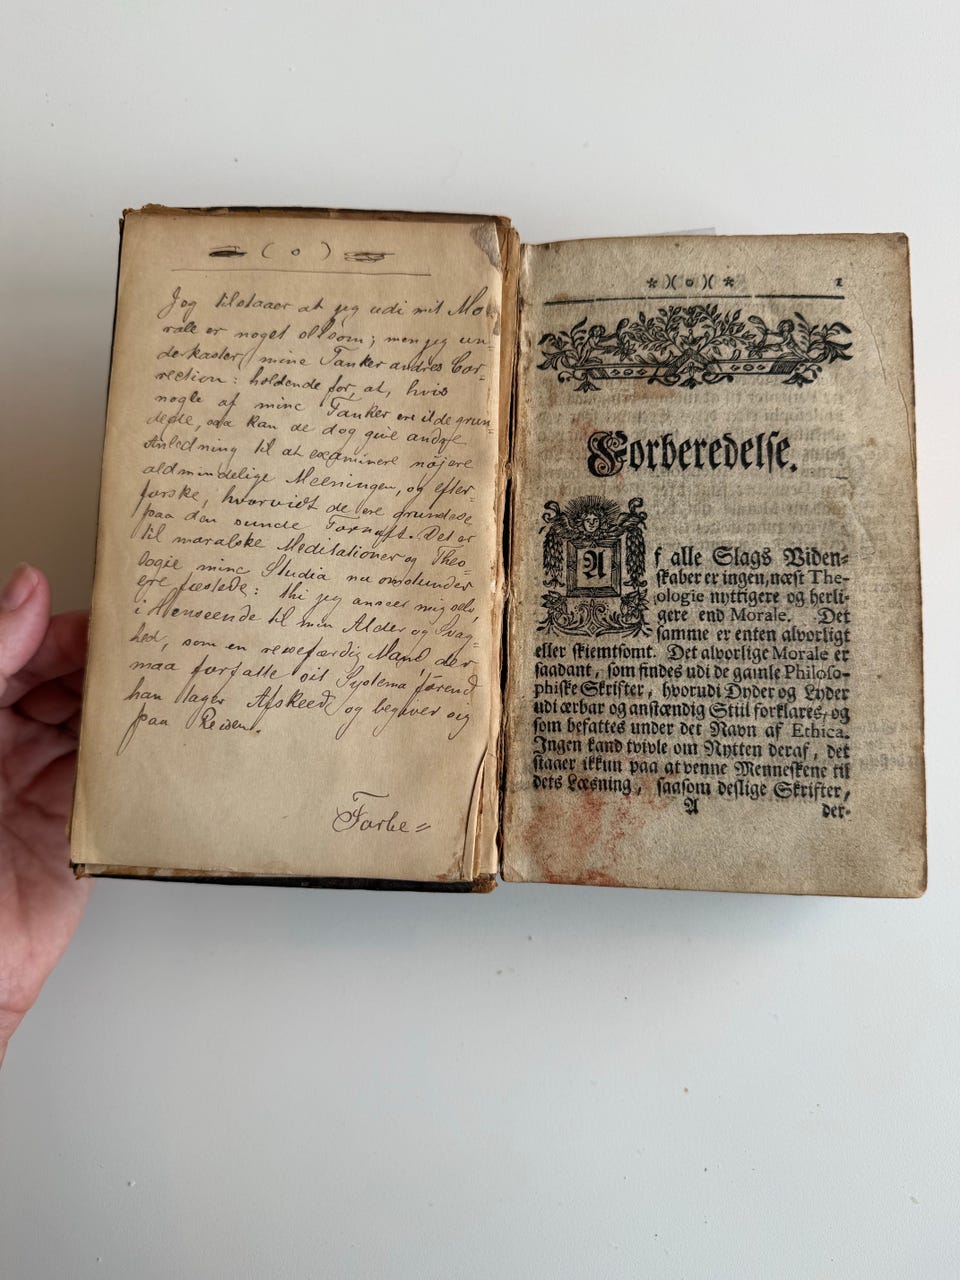 ( o )
Jeg tilstaaer at jeg udi mit Mo-
rale er noget ; men jeg un-
derkaster mine Tanker andres Cor-
rection: holdende for, at, hvis
nogle af mine Tanker ere ilde grun-
dede, saa kan de dog give andre
Anledning til at examinere nøjere
aldmindelige Meeninger, og efter-
forske, hvorvidt de ere grundede
paa den sunde Fornuft. Det er
til moralske Meditationer og Theo-
logie mine Studia nu omstunder
ere fæstede: thi jeg anseer mig selv,
i Henseende til min Alder og Svag-
hed, som en reisefærdig Mand der
maa forfatte sit Systema førend
han tager Afskeed og begiver sig
paa Reisen.
Forbe=
*)( o )( * 1
Forberedelse.
Af alle Slags Viden-
skaber er ingen, næst The-
ologie nyttigere og herli-
gere end Morale. Det
samme er enten alvorligt
eller skiemtsomt. Det alvorlige Morale er
saadant, som findes udi de gamle Philoso-
phiske Skrifter, hvorudi Dyder og Lyder
udi ærbar og anstændig Stiil forklares, og
som befattes under det Navn af Ethica.
Ingen kand tvivle om Nytten deraf, det
staaer ikkun paa at venne Menneskene til
dets Læsning, saasom deslige Skrifter,
A der-